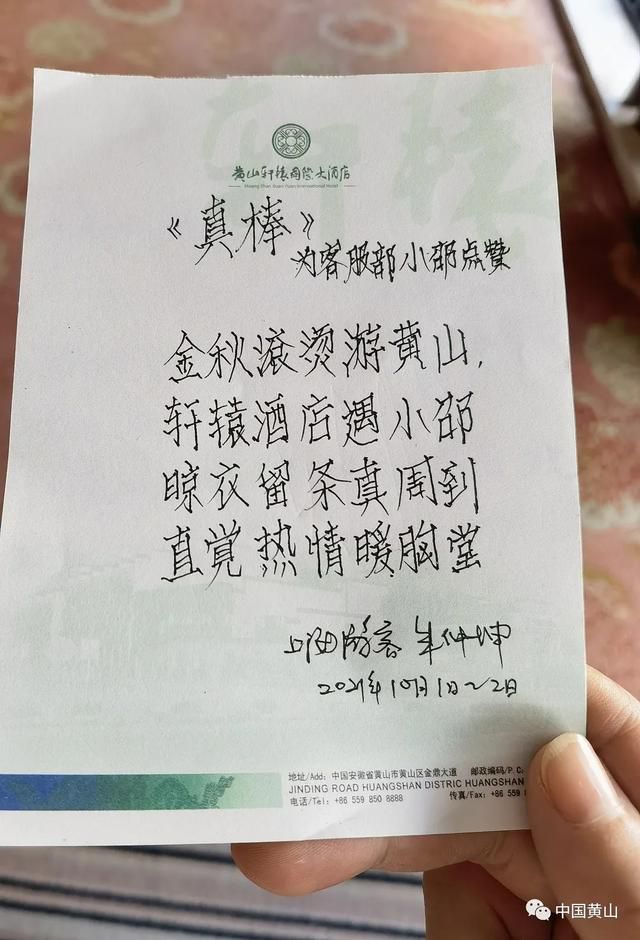 轩辕
黄山轩辕国际大酒店
Huang Shan Xuan Yuan International Hotel
《真棒》
为客服部小邵点赞
金秋滚烫游黄山,
轩辕酒店遇小邵
晾衣留条真周到
直觉热情暖胸堂
游客 朱仲坤
2021年10月1日~2日
地址/Add: 中国安徽省黄山市黄山区金鼎大道 邮政编码/P.C
JINDING ROAD HUANGSHAN DISTRIC HUANGSHAN
电话/Tel: +86 559 850 8888 传真/Fax: +86 559
中国黄山